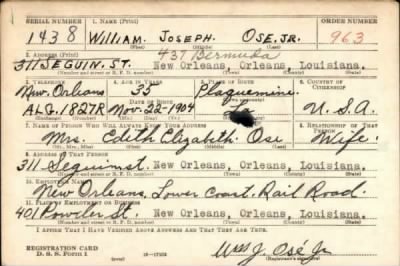 SERIAL NUMBER 1. NAME (Print) ORDER NUMBER
1438 WILLIAM JOSEPH. OSE, JR. 963
(First) (Middle) (Last)
2. ADDRESS (Print) 437 Bermuda
311 SEGUIN. ST. New Orleans, Orleans, Louisiana.
(Number and street or R. F. D. number) (Town) (County) (State)
3. TELEPHONE 4. AGE IN YEARS 5. PLACE OF BIRTH 6. COUNTRY OF CITIZENSHIP
New Orleans 35 Plaquemine
DATE OF BIRTH
ALG. 1827R Nov. 22-1904 La U.S.A.
7. NAME OF PERSON WHO WILL ALWAYS KNOW YOUR ADDRESS 8. RELATIONSHIP OF THAT PERSON
Mrs. Edith Elizabeth. Ose Wife.
(Mr., Mrs., Miss) (First) (Middle) (Last)
9. ADDRESS OF THAT PERSON
311 Seguin st. New Orleans, Orleans, Louisiana.
(Number and street or R. F. D. number) (Town) (County) (State)
10. EMPLOYER'S NAME
New Orleans, Lower Coast. Rail Road.
11. PLACE OF EMPLOYMENT OR BUSINESS
401 Powder st. New Orleans, Orleans, Louisiana.
(Number and street or R. F. D. number) (Town) (County) (State)
I AFFIRM THAT I HAVE VERIFIED ABOVE ANSWERS AND THAT THEY ARE TRUE.
REGISTRATION CARD
D. S. S. FORM 1 16-17105 Wm J. Osé Jr
(Registrant's signature)